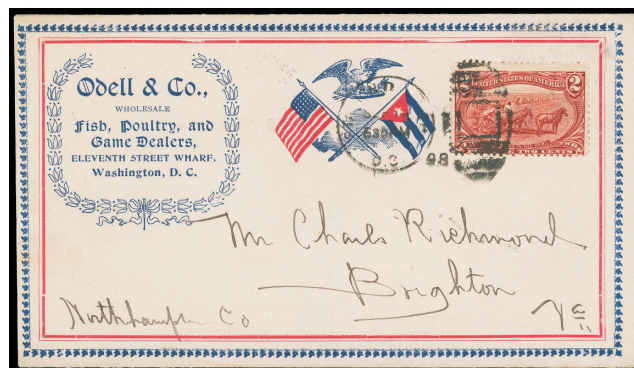 Odell & Co.,
WHOLESALE
Fish, Poultry, and
Game Dealers,
ELEVENTH STREET WHARF,
Washington, D. C.
530
D.C.
98
UNITED STATES OF AMERICA
2
TWO CENTS
Mr Charls Richmond
Brighton
Northampton Co
Va